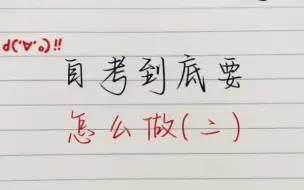 d(°∀°)!!
自考到底要
怎么做(二)